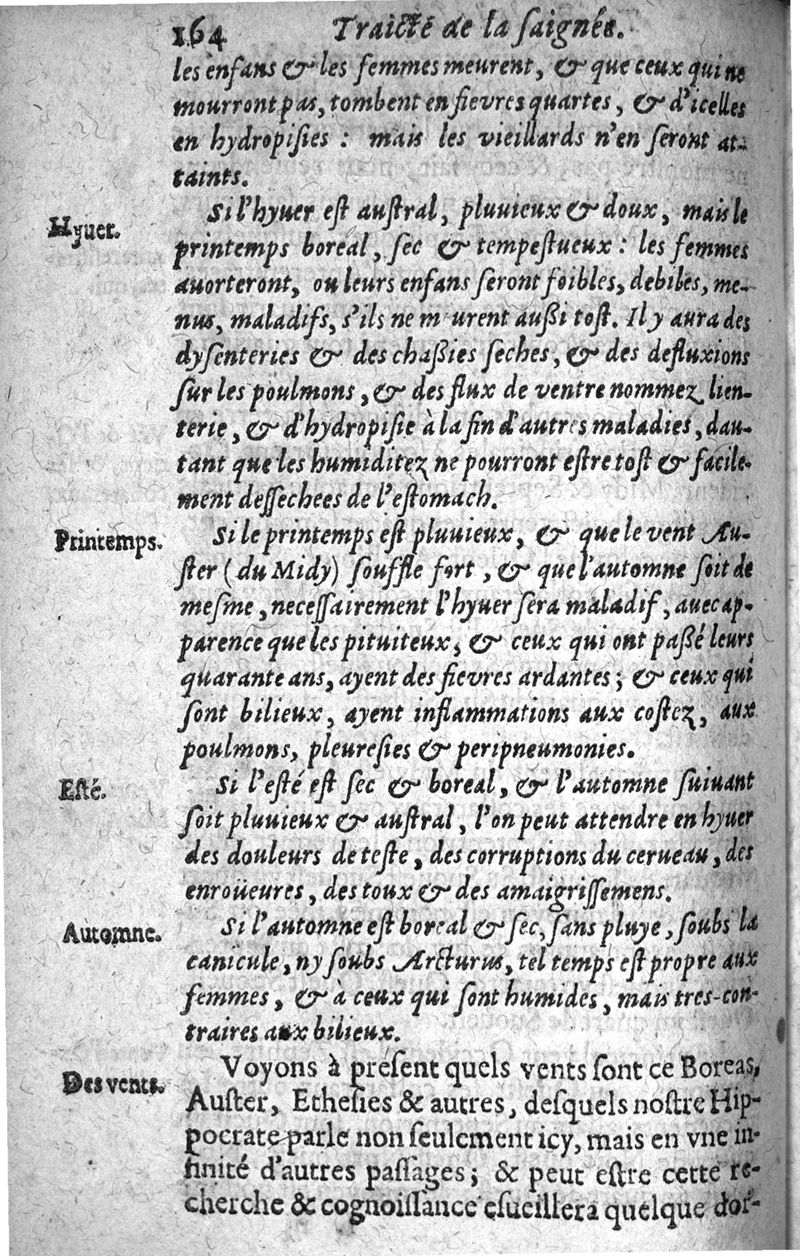 164 Traicté de la saignée.
les enfans & les femmes meurent, & que ceux qui ne
mourront pas, tombent en fievres quartes, & d'icelles
en hydropisies : mais les vieillards n'en seront at-
taints.
Hyuer.
Si l'hyuer est austral, pluuieux & doux, mais le
printemps boreal, sec & tempestueux : les femmes
auorteront, ou leurs enfans seront foibles, debiles, me-
nus, maladifs, s'ils ne meurent außi tost. Il y aura des
dysenteries & des chaßies seches, & des defluxions
sur les poulmons, & des flux de ventre nommez lien-
terie, & d'hydropisie à la fin d'autres maladies, dau-
tant que les humiditez ne pourront estre tost & facile-
ment dessechees de l'estomach.
Printemps.
Si le printemps est pluuieux, & que le vent Au-
ster (du Midy) souffle fort, & que l'automne soit de
mesme, necessairement l'hyuer sera maladif, auec ap-
parence que les pituiteux, & ceux qui ont paßé leurs
quarante ans, ayent des fievres ardantes ; & ceux qui
sont bilieux, ayent inflammations aux costez, aux
poulmons, pleuresies & peripneumonies.
Esté.
Si l'esté est sec & boreal, & l'automne suiuant
soit pluuieux & austral, l'on peut attendre en hyuer
des douleurs de teste, des corruptions du cerueau, des
enroüeures, des toux & des amaigrissemens.
Automne.
Si l'automne est boreal & sec, sans pluye, soubs la
canicule, ny soubs Arcturus, tel temps est propre aux
femmes, & à ceux qui sont humides, mais tres-con-
traires aux bilieux.
Des vents.
Voyons à present quels vents sont ce Boreas,
Auster, Ethesies & autres, desquels nostre Hip-
pocrate parle non seulement icy, mais en vne in-
finité d'autres passages ; & peut estre cette re-
cherche & cognoissance esueillera quelque dor-